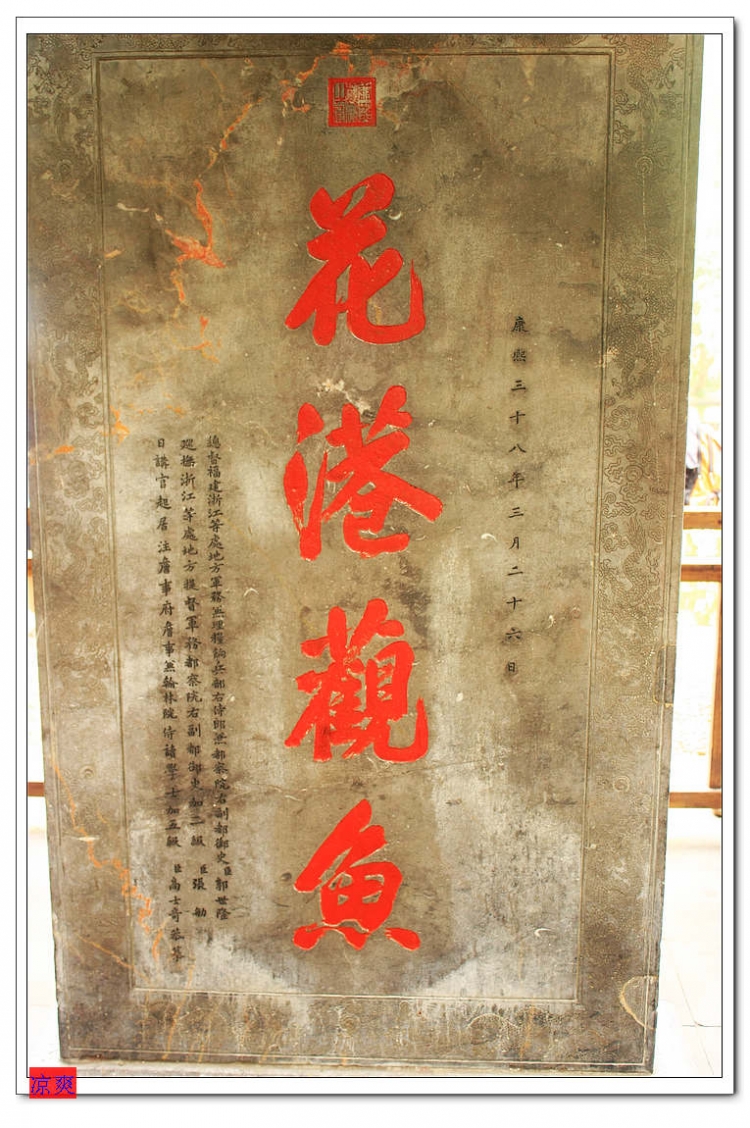 康熙三十八年三月二十六日
花港觀魚
總督福建浙江等處地方軍務兼理糧餉兵部右侍郎兼都察院右副都御史臣郭世隆
巡撫浙江等處地方提督軍務都察院右副都御史加二級臣張
日講官起居注詹事府詹事兼翰林院侍讀學士加五級臣高士奇恭摹
凉爽